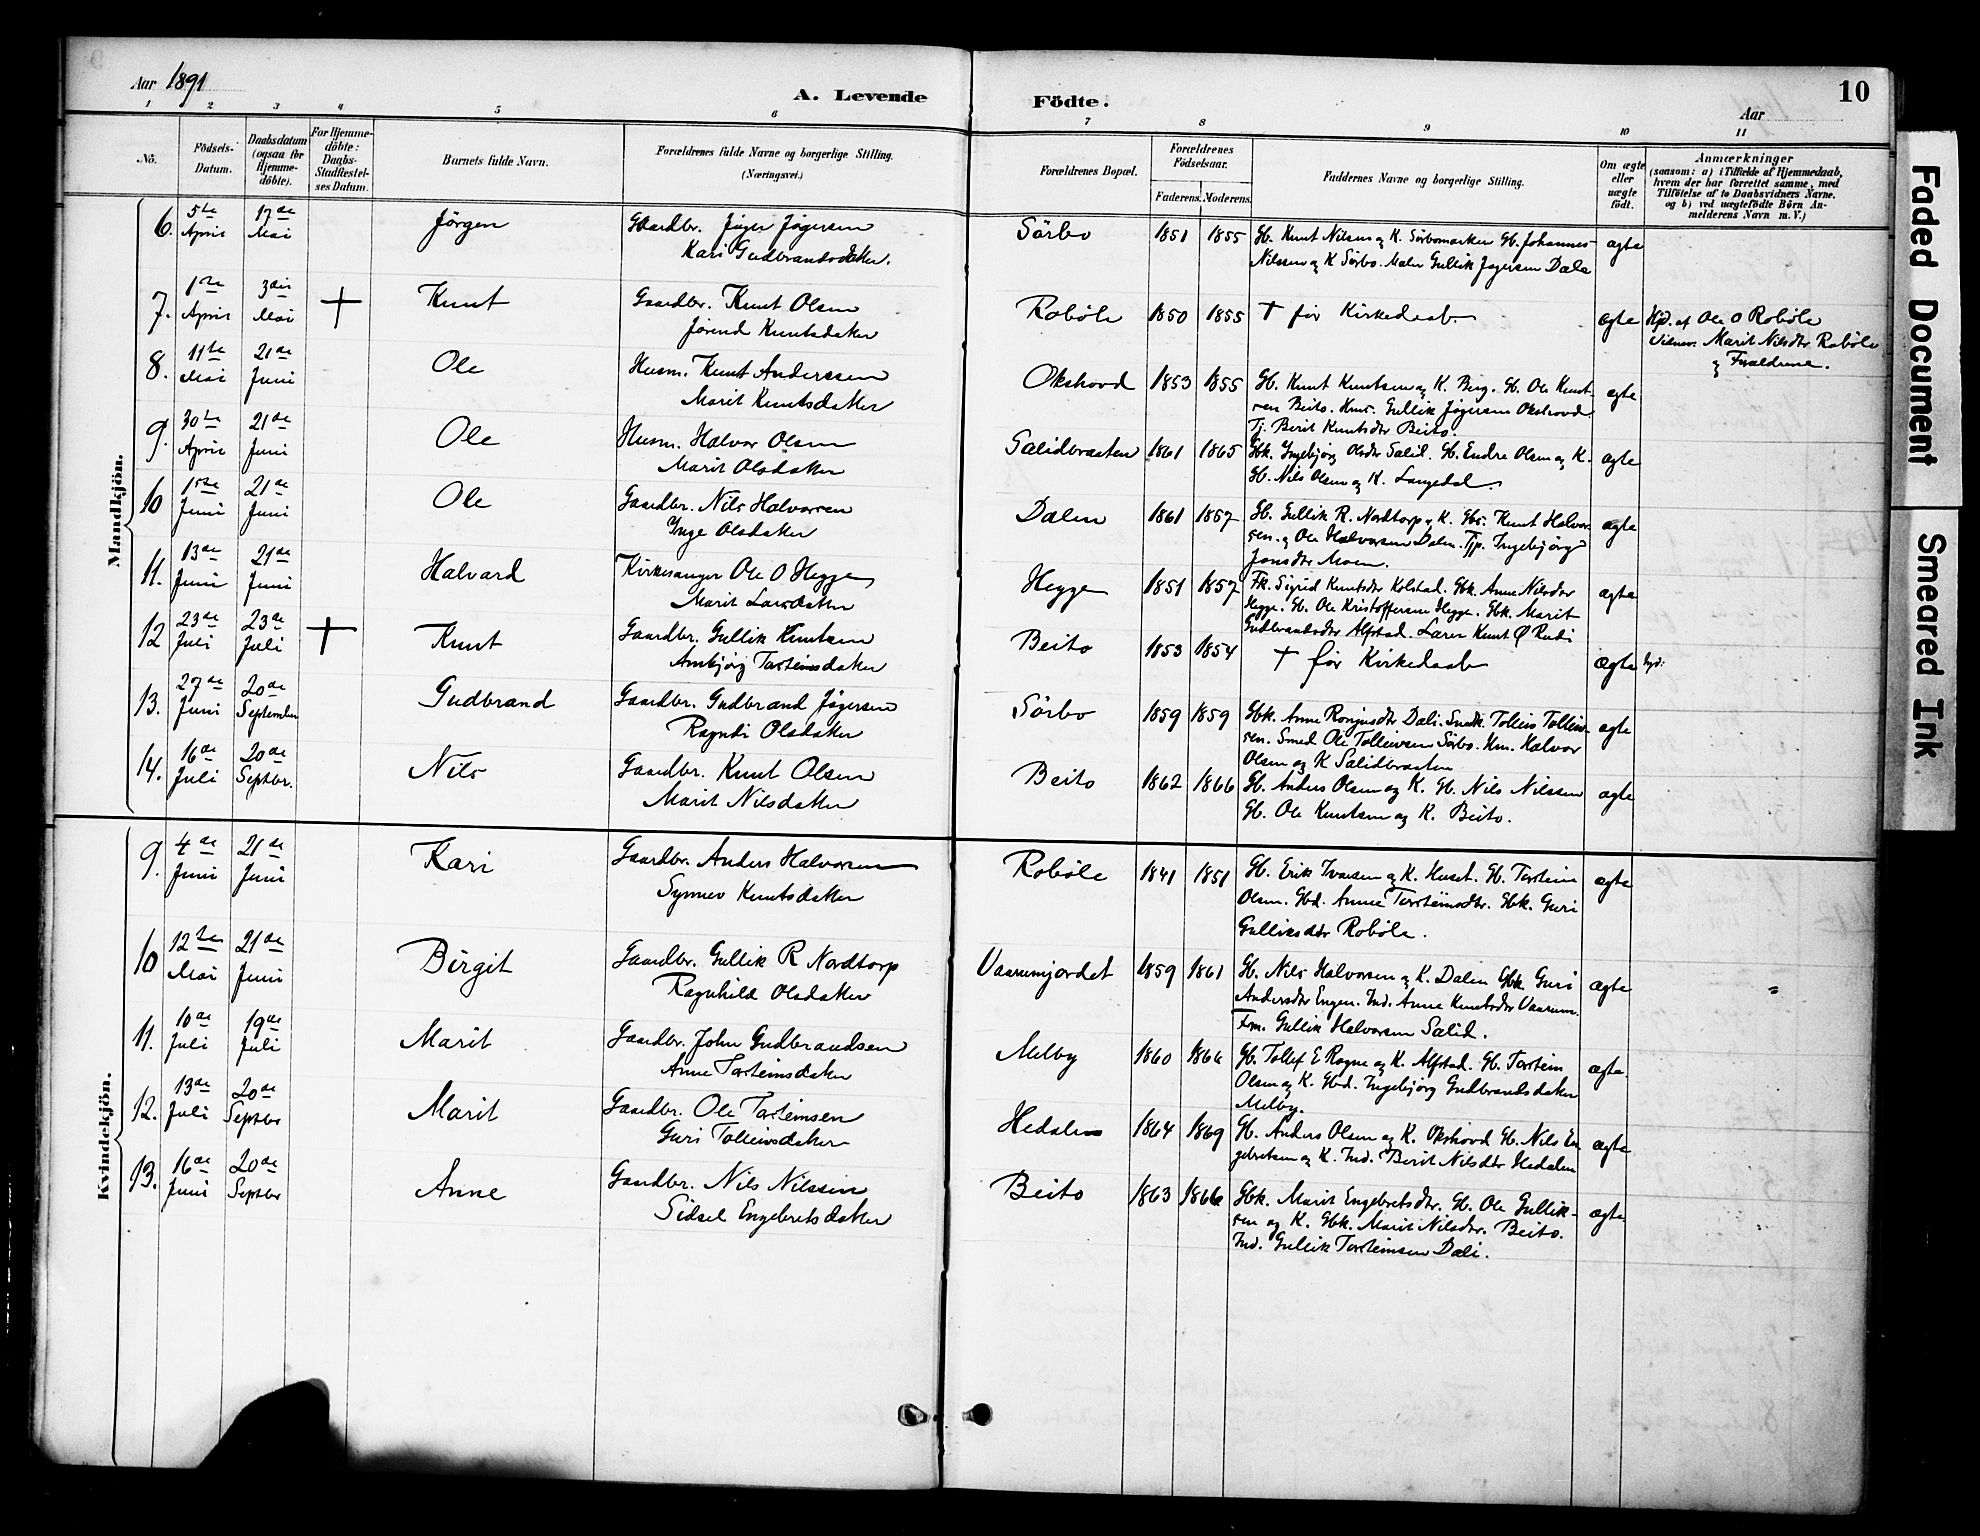 Aar 1891
A. Levende Födte.
Aar
10
1 2 3 4 5 6 7 8 9 10 11
No.
Födsels-Datum.
Daabsdatum (ogsaa for Hjemme-döbte).
For Hjemme-döbte: Daabs-Stadfestel-ses Datum.
Barnets fulde Navn.
Forældrenes fulde Navne og borgerlige Stilling. (Næringsvei.)
Forældrenes Bopæl.
Forældrenes Födselsaar.
Faderens. Moderens.
Faddernes Navne og borgerlige Stilling.
Om ægte eller uægte født.
Anmærkninger
(saasom: a) i Tilfælde af Hjemmedaab,
hvem der har forrettet samme, med
Tilföielse af to Daabsvidners Navne,
og b) ved uægtefödte Börn An-
melderens Navn m. V.)
Mandkjön.
6. 5te April 17de Mai Jørgen Gaardbr. Jøger Jøgersen Sörbo 1851 1855 Gb. Knut Nilsen og K. Sörbomarken Gb. Johannes ægte
Kari Gudbrandsdatter. Nilssen og K Sörbo. Maler Gullik Jøgersen Dale
7. 1ste April 3die Mai † Knut Gaardbr. Knut Olsen Roböle 1850 1855 † før Kirkedaab. ægte Hjd. af Ole O Roböle
Jörend Knutsdatter Vidner. Marit Nilsdtr Roböle
og Forældrene.
8. 11te Mai 21de Juni Ole Husm. Knut Anderssen Okshovd 1853 1855 Gb. Knut Knutsen og K. Berg. Gb. Ole Knut- ægte
Marit Knutsdatter sen Beito. Hms. Gullik Jøgersen Okshovd
Tj. Berit Knutsdtr Beito.
9. 30te April 21de Juni Ole Husm. Halvor Olsen Salidbraaten 1861 1865 Gbk. Ingebjörg Olsdtr Salid. Gb. Endre Olsen og K. ægte
Marit Olsdatter Gb. Nils Olsen og K. Langedal.
10 1ste Juni 21de Juni Ole Gaardbr. Nils Halvorsen Dalen 1861 1857 Gb. Gullik R. Nordtorp og K. Gbs. Knut Halvor- ægte
Inge Olsdatter sen og Ole Halvorsen Dalen. Tjp. Ingebjörg
Jonsdtr Moen.
11. 13de Juni 21de Juni Halvard Kirkesanger Ole O Hegge Hegge 1851 1857 Fk. Sigrid Knutsdtr Kolstad. Gbk. Anne Nilsdtr ægte
Marit Larsdatter Hegge. Gb. Ole Kristoffersen Hegge. Gbk. Marit
Gudbrandsdtr Alfstad. Lærer Knut Ø Rudi
12 23de Juli 23de Juli † Knut Gaardbr. Gullik Knutsen Beito 1853 1854 † før Kirkedaab ægte
Ambjörg Torsteinsdatter
13. 27de Juni 20de September Gudbrand Gaardbr. Gudbrand Jøgersen Sörbo 1859 1859 Gbk. Anne Ronjusdtr Dali. Snedk. Tolleiv Tolleiv- ægte
Ragndi Olsdatter sen. Smed Ole Tolleivsen Sörbo. Hm. Halvor
Olsen og K Salidbraaten
14. 16de Juli 20de Septbr. Nils Gaardbr. Knut Olsen Beito 1862 1866 Gb. Anders Olsen og K. Gb. Nils Nilssen ægte
Marit Nilsdatter Gb. Ole Knutsen og K. Beito.
Kvindekjön.
9. 4de Juni 21de Juni Kari Gaardbr. Anders Halvorsen Roböle 1841 1851 Gb. Erik Ivarsen og K. Huset. Gb. Torstein ægte
Synnev Knutsdatter Olsen. Gbd. Anne Torsteinsdtr. Gbk. Guri
Gulliksdtr Roböle.
10 12te Mai 21de Juni Birgit Gaardbr. Gullik R Nordtorp Vaarumjordet 1859 1861 Gb. Nils Halvorsen og K. Dalen Gbk Guri ægte
Ragnhild Olsdatter Andersdtr Engen. Ind. Anne Knutsdtr Vaarum.
Fm. Gullik Halvorsen Salid.
11. 10de Juli 19de Juli Marit Gaardbr. John Gudbrandsen Melby 1860 1866 Gb. Tollef E Rogne og K. Alfstad. Gb. Torstein ægte.
Anne Torsteinsdatter Olsen og K. Gbd. Ingebjörg Gudbrandsdatter
Melby.
12. 13de Juli 20de Septbr Marit Gaardbr. Ole Torsteinsen Hedalen 1864 1869 Gb. Anders Olsen og K. Okshovd Gb. Nils En- ægte
Guri Tolleivsdatter gebretsen og K. Ind. Berit Nilsdtr Hedalen
13. 16de Juni 20de Septbr Anne Gaardbr. Nils Nilssen Beito 1863 1866 Gbk. Marit Engebretsdtr. Gb. Ole Gullik- ægte
Sidsel Engebretsdatter sen og K. Gbk. Marit Nilsdtr. Beito.
Ind. Gullik Torsteinsen Dali.
Faded Document
Smeared Ink